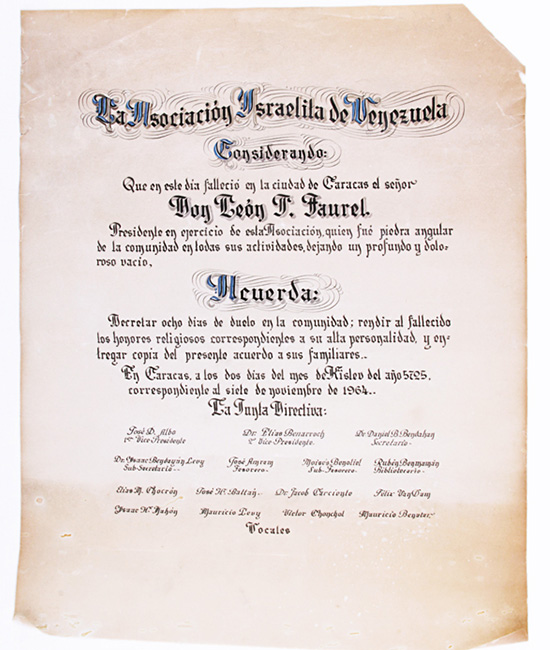 La Asociación Israelita de Venezuela
Considerando:
Que en este día falleció en la ciudad de Caracas el señor
Don León T. Taurel.
Presidente en ejercicio de esta Asociación, quien fué piedra angular
de la comunidad en todas sus actividades, dejando un profundo y dolo-
roso vacío,
Acuerda:
Decretar ocho dias de duelo en la comunidad; rendir al fallecido
los honores religiosos correspondientes a su alta personalidad, y en-
tregar copia del presente acuerdo a sus familiares..
En Caracas, a los dos dias del mes de Kislev del año 5725,
correspondiente al siete de noviembre de 1964..
La Junta Directiva:
José D. Albo Dr. Elías Benarroch Dr. Daniel B. Bendahan
1er Vice-Presidente 2º Vice-Presidente Secretario..
Dr. Isaac Bendayán Levy José Amram Moisés Benoliel Rubén Bermamán
Sub-Secretario.. Tesorero.. Sub-Tesorero.. Bibliotecario..
Elías M. Chocrón José H. Battán.. Dr. Jacob Carciente Felix Van Dam
Isaac Nahón Mauricio Levy Víctor Chonchol Mauricio
Vocales